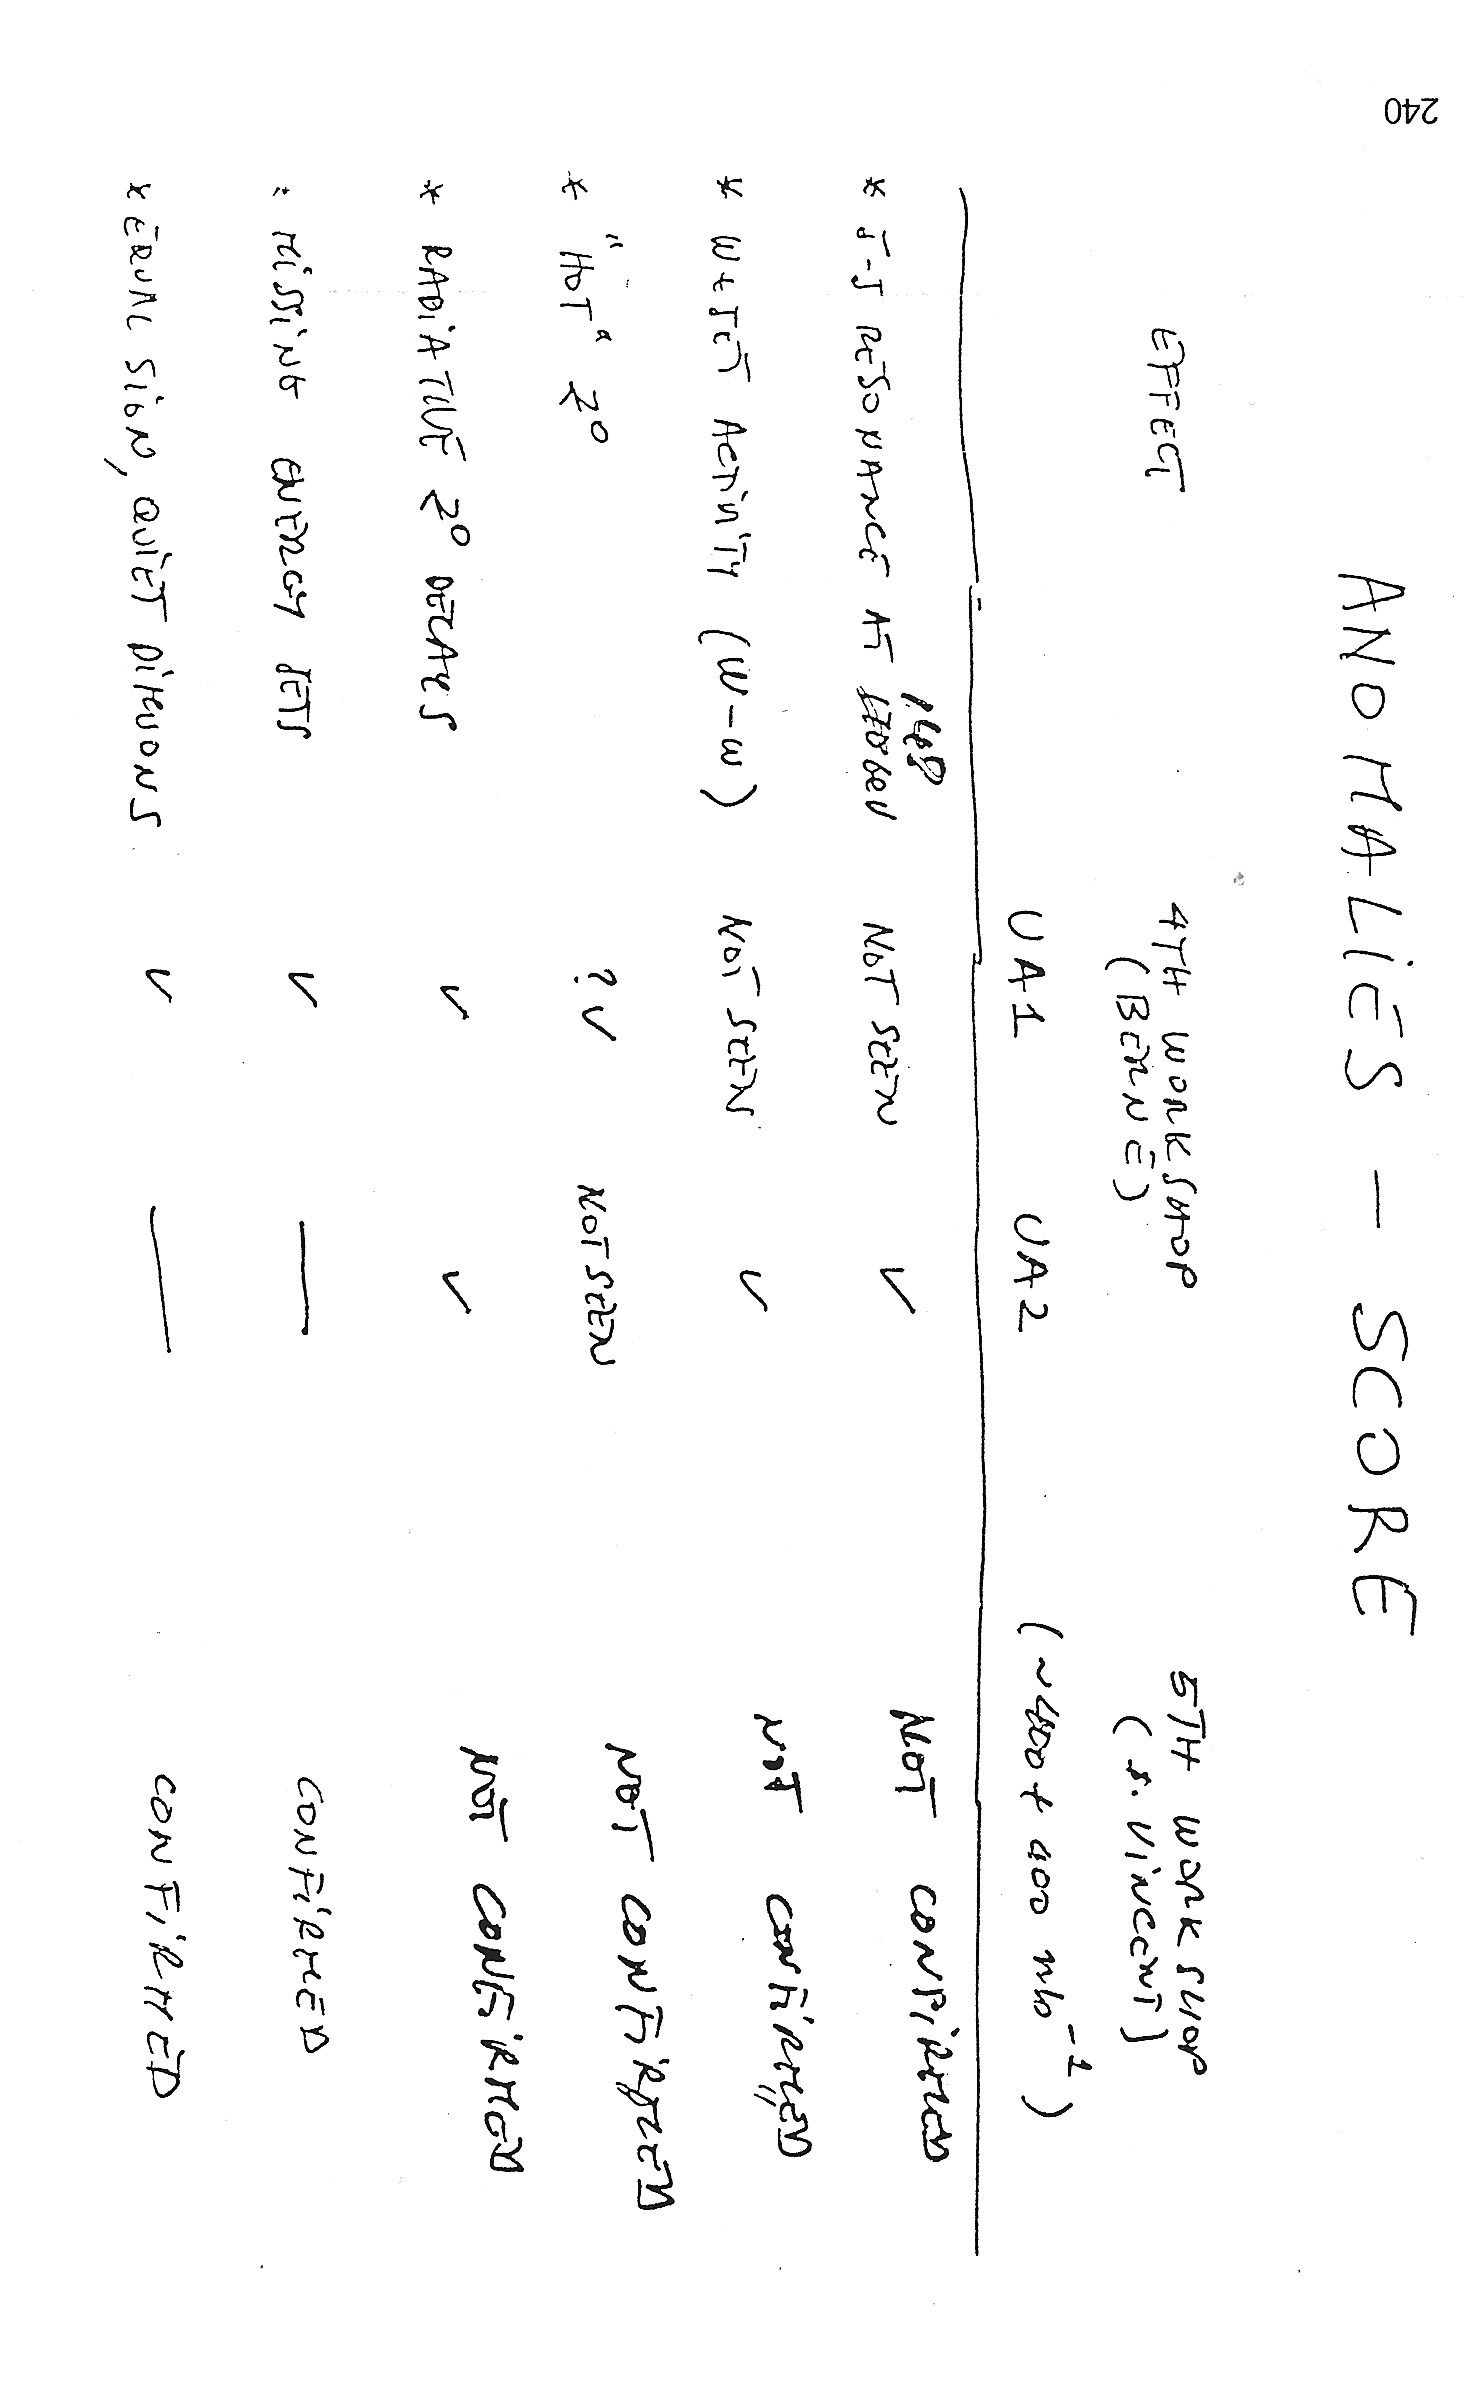 240
ANOMALIES - SCORE
EFFECT 4TH WORKSHOP 5TH WORKSHOP
(BERNE) (S. VINCENT)
UA1 UA2 (~400 + 400 nb⁻¹)
* J-J RESONANCE AT 148 GeV NOT SEEN ✓ NOT CONFIRMED
* W + JET ACTIVITY (W-W) NOT SEEN ✓ NOT CONFIRMED
* "HOT" Z⁰ ?✓ NOT SEEN NOT CONFIRMED
* RADIATIVE Z⁰ DECAYS ✓ ✓ NOT CONFIRMED
* MISSING ENERGY JETS ✓ — CONFIRMED
* EQUAL SIGN, QUIET DIMUONS ✓ — CONFIRMED